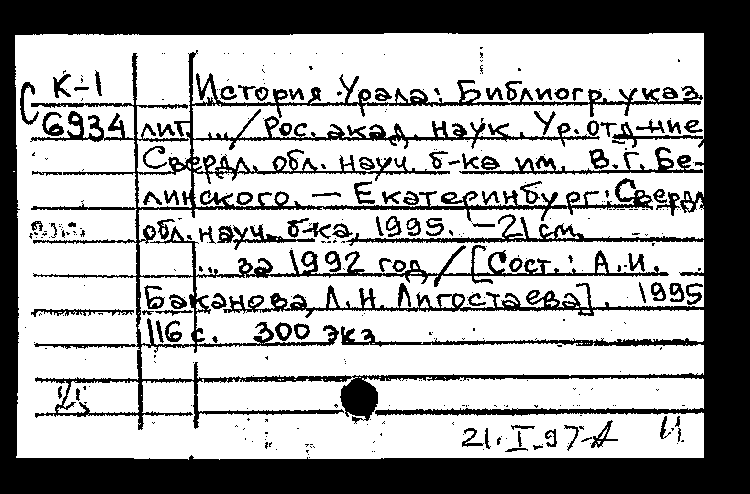 С К-1 История Урала: Библиогр. указ.
6934 лит. .../ Рос. акад. наук. Ур. отд-ние,
Свердл. обл. науч. б-ка им. В.Г. Бе-
линского. — Екатеринбург: Свердл.
обл. науч. б-ка, 1995. — 21 см.
... за 1992 год / [Сост.: А.И.
Баканова, Л.Н. Лигостаева]. 1995
116 с. 300 экз.
21.I.97